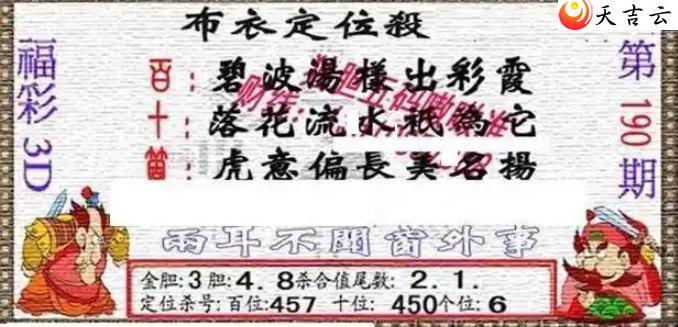 天吉云
布衣定位殺
福彩3D
第190期
百:碧波湯樣出彩霞
十:落花流水祇為它
個:虎意偏長美名揚
兩耳不聞窗外事
金胆:3胆:4.8杀合值尾数:2.1.
定位杀号:百位:457 十位:450个位:6